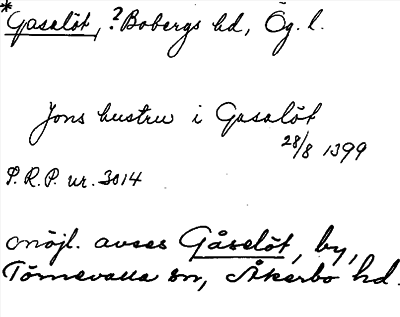 *Gasalöt, ?Bobergs hd, Ög. l.
Jons hustru i Gasalöt
28/8 1399
S.R.P. nr. 3014
möjl. avses Gåselöt, by,
Törnevalla sn, Åkerbo hd.